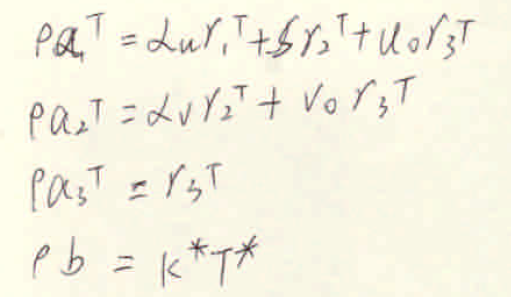 ρa₁ᵀ = αᵤr₁ᵀ + sr₂ᵀ + u₀r₃ᵀ
ρa₂ᵀ = αᵥr₂ᵀ + v₀r₃ᵀ
ρa₃ᵀ = r₃ᵀ
ρb = K*T*